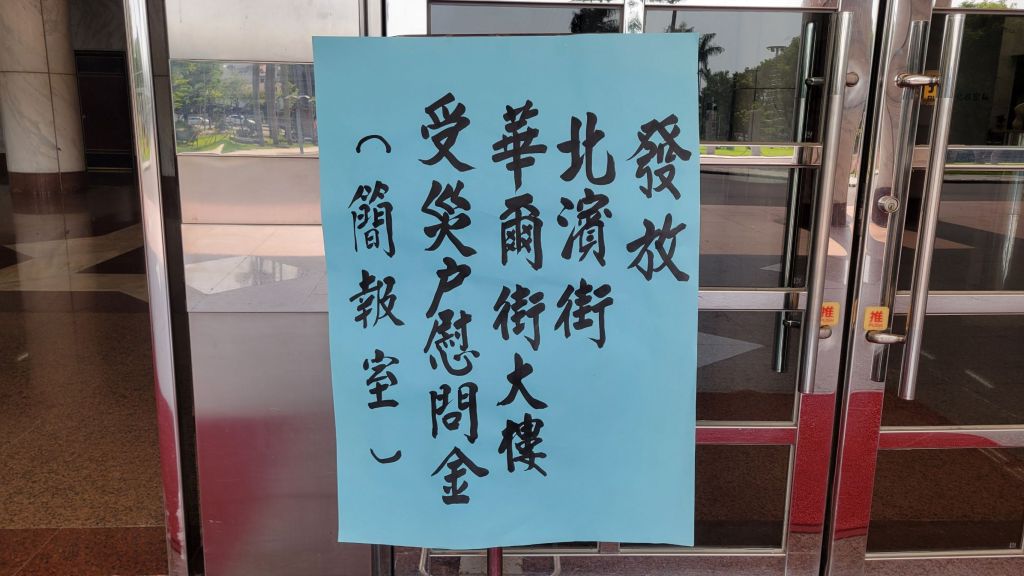 發放
北濱街
華爾街大樓
受災户慰問金
（簡報室）
推
推